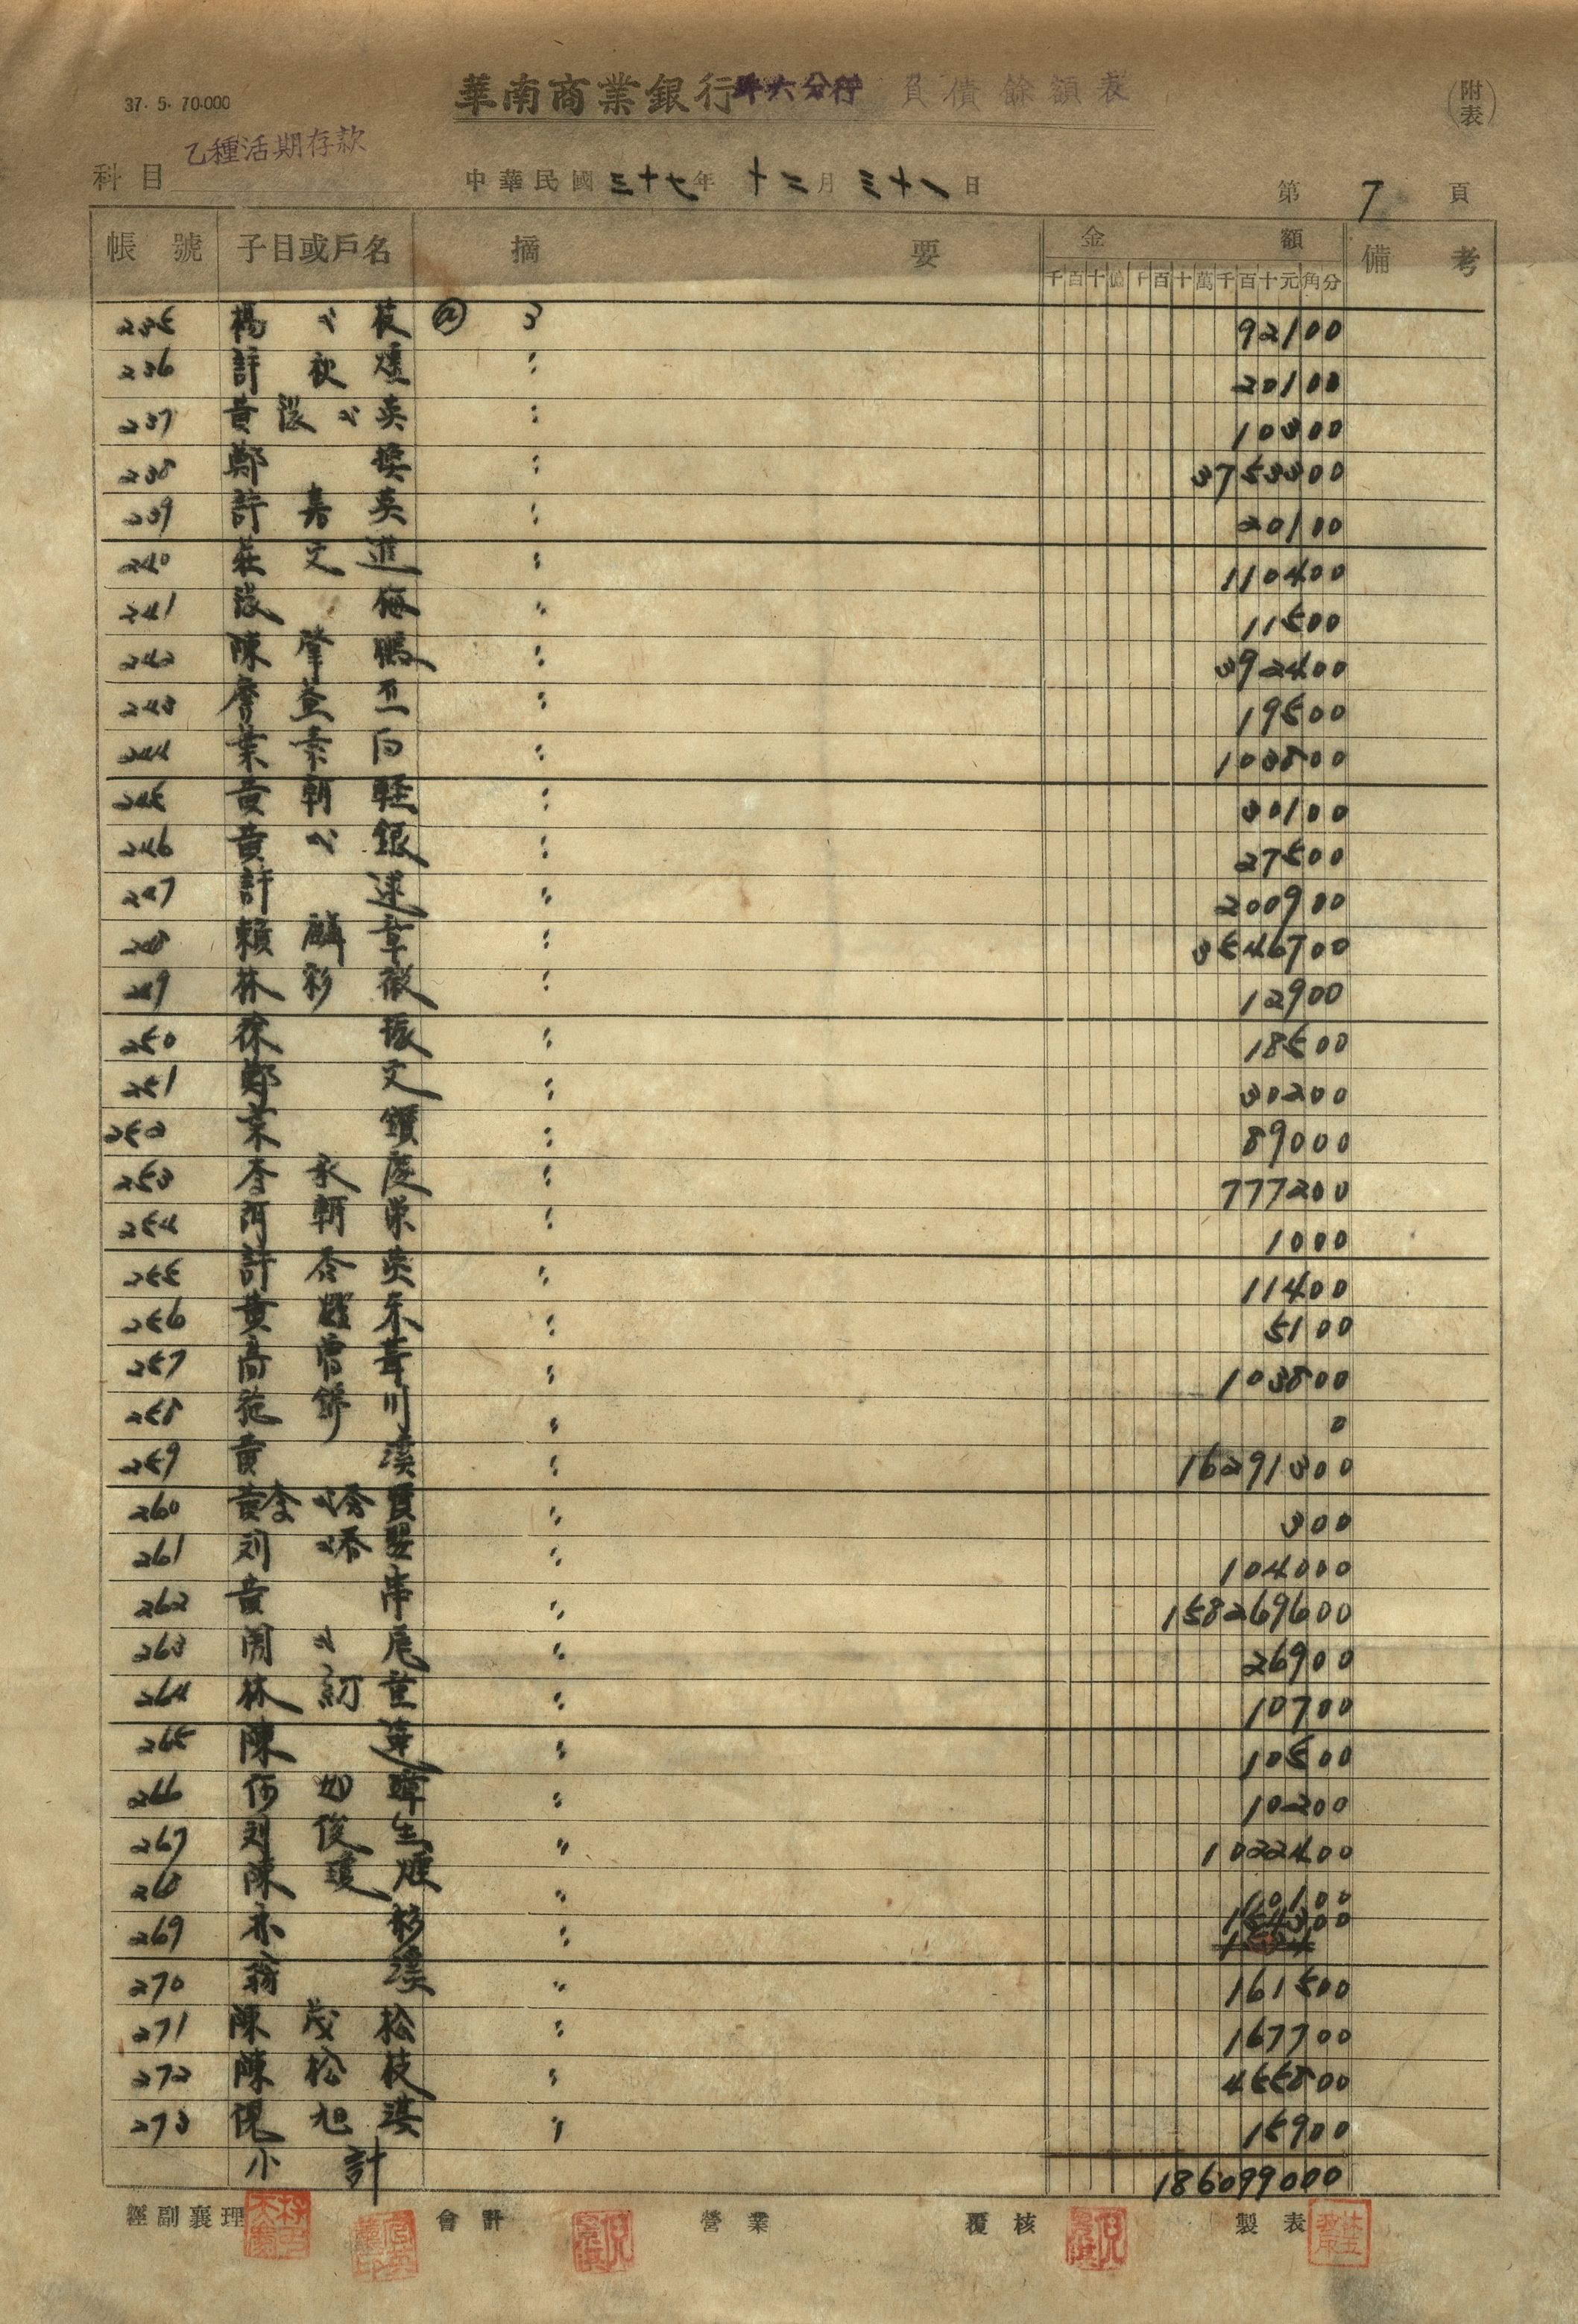 37. 5. 70.000
華南商業銀行斗六分行 負債餘額表
(附表)
科目 乙種活期存款
中華民國三十七年 十二月 三十一日
第 7 頁
帳號 子目或戶名 摘要 金額 備考
千百十億千百十萬千百十元角分
235 楊 枝 @ 3 92100
236 許 秋 〃 20100
237 黃 英 〃 10300
238 鄭 〃 3753300
239 許 嘉 英 〃 20100
240 莊 文 進 〃 110400
241 梅 〃 11500
242 陳 肇 鵬 〃 392400
243 詹 〃 19500
244 葉 素 〃 103800
245 黃 朝 輕 〃 30100
246 黃 銀 〃 27500
247 許 述 〃 200900
248 賴 麟 章 〃 3546700
249 林 彩 微 〃 12900
250 徐 振 〃 18500
251 鄭 文 〃 30200
252 葉 鑽 〃 89000
253 李 永 慶 〃 777200
254 朝 榮 〃 1000
255 許 英 〃 11400
256 黃 〃 5100
257 高 曾 〃 103800
258 川 〃 0
259 黃 溪 〃 16291300
260 黃李 秀 賢 〃 300
261 刘 〃 104000
262 黃 串 〃 158269600
263 周 尾 〃 26900
264 林 〃 10700
265 陳 蓮 〃 10500
266 何 〃 10200
267 刘 俊 生 〃 1022400
268 陳 〃 10100
269 〃 154300
270 翁 溪 〃 161500
271 陳 茂 松 〃 167700
272 陳 松 枝 〃 455800
273 倪 旭 淇 〃 15900
小計 186099000
經副襄理 會計 營業 覆核 製表